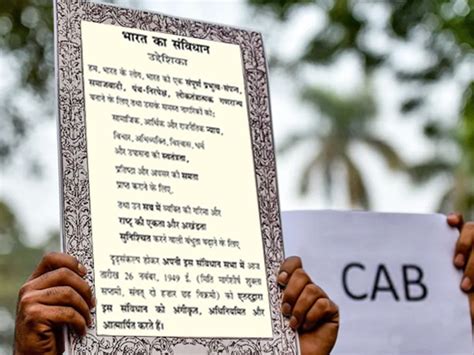 भारत का संविधान
उद्देशिका
हम, भारत के लोग, भारत को एक संपूर्ण प्रभुत्व-संपन्न,
समाजवादी, पंथ-निरपेक्ष, लोकतन्त्रात्मक गणराज्य
बनाने के लिए तथा उसके समस्त नागरिकों को:
सामाजिक, आर्थिक और राजनैतिक न्याय,
विचार, अभिव्यक्ति, विश्वास, धर्म
और उपासना की स्वतंत्रता,
प्रतिष्ठा और अवसर की समता
प्राप्त कराने के लिए,
तथा उन सब में व्यक्ति की गरिमा और
राष्ट्र की एकता और अखंडता
सुनिश्चित करने वाली बंधुता बढ़ाने के लिए
दृढ़संकल्प होकर अपनी इस संविधान सभा में आज
तारीख 26 नवंबर, 1949 ई (मिति मार्गशीर्ष शुक्ला
सप्तमी, संवत् दो हजार छह विक्रमी) को एतद्द्वारा
इस संविधान को अंगीकृत, अधिनियमित और
आत्मार्पित करते हैं।
CAB